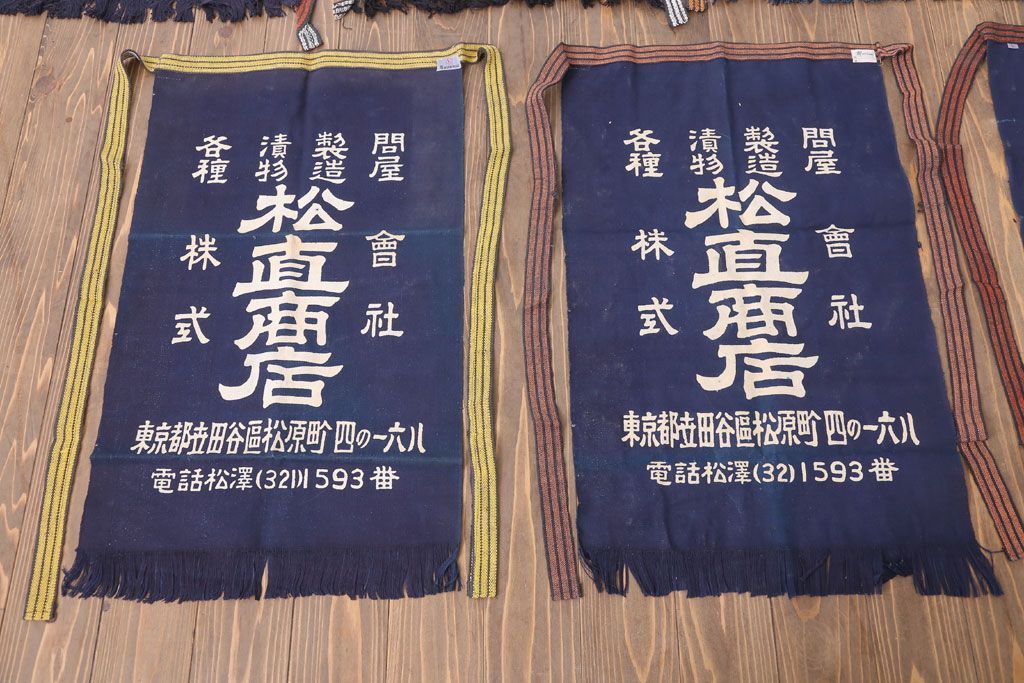 各種 漬物 製造 問屋
株式 松直商店 會社
東京都世田谷區松原町四の一六八
電話松澤(32)1593番
各種 漬物 製造 問屋
株式 松直商店 會社
東京都世田谷區松原町四の一六八
電話松澤(32)1593番